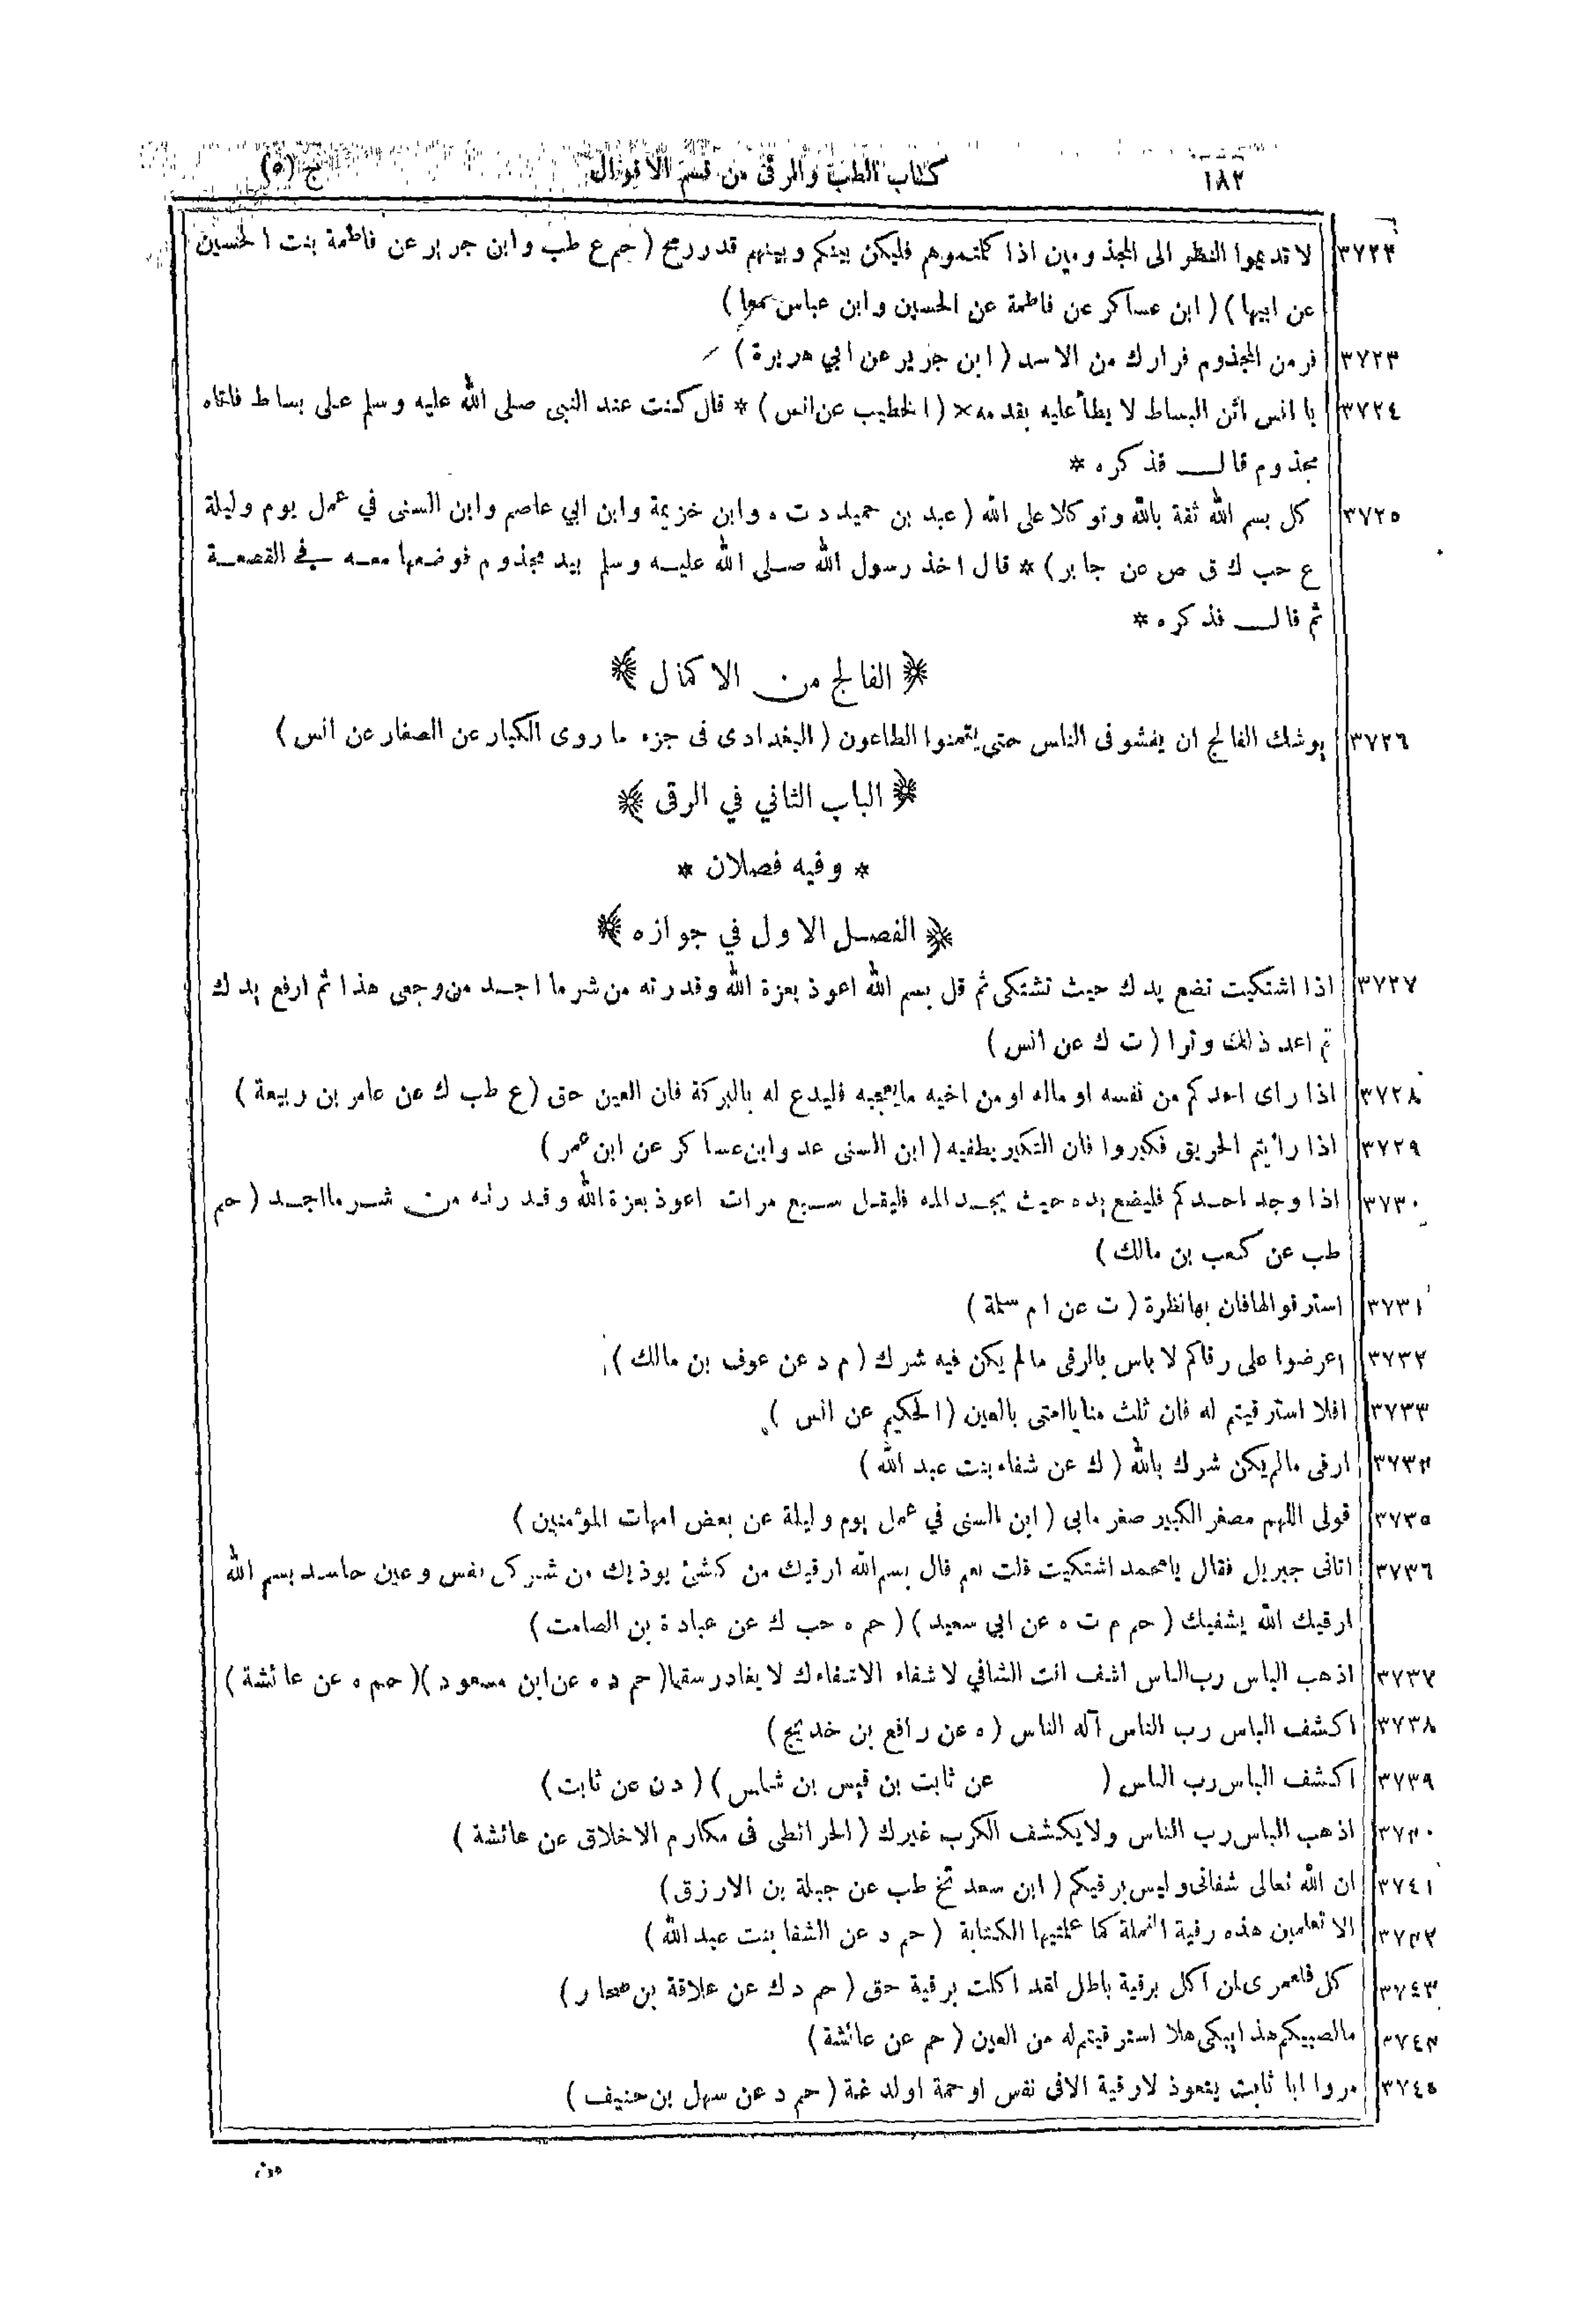 ١٨٢ كتاب الطب والرقى من قسم الاقوال ج (٥)
٣٧٢٢ لا تديموا النظر الى المجذومين اذا كلتموهم فليكن بينكم وبينهم قدر رمح (حم ع طب وابن جرير عن فاطمة بنت الحسين
عن ابيها) (ابن عساكر عن فاطمة عن الحسين وابن عباس معا)
٣٧٢٣ فر من المجذوم فرارك من الاسد (ابن جرير عن ابي هريرة)
٣٧٢٤ يا انس اثن البساط لا يطأ عليه بقدمه × (الخطيب عن انس) * قال كنت عند النبى صلى الله عليه وسلم على بساط فاتاه
مجذوم قال فذكره *
٣٧٢٥ كل بسم الله ثقة بالله وتوكلا على الله (عبد بن حميد د ت ه وابن خزيمة وابن ابي عاصم وابن السنى في عمل يوم وليلة
ع حب ك ق ص عن جابر) * قال اخذ رسول الله صلى الله عليه وسلم بيد مجذوم فوضعها معه في القصعة
ثم قال فذكره *
﴿ الفالج من الاكمال ﴾
٣٧٢٦ يوشك الفالج ان يفشو فى الناس حتى يتمنوا الطاعون (البغدادى فى جزء ما روى الكبار عن الصغار عن انس)
﴿ الباب الثاني في الرقى ﴾
* وفيه فصلان *
﴿ الفصل الاول في جوازه ﴾
٣٧٢٧ اذا اشتكيت تضع يدك حيث تشتكى ثم قل بسم الله اعوذ بعزة الله وقدرته من شر ما اجد من وجعى هذا ثم ارفع يدك
ثم اعد ذلك وترا (ت ك عن انس)
٣٧٢٨ اذا راى احدكم من نفسه او ماله او من اخيه ما يعجبه فليدع له بالبركة فان العين حق (ع طب ك عن عامر بن ربيعة)
٣٧٢٩ اذا رأيتم الحريق فكبروا فان التكبير يطفيه (ابن السنى عد وابن عساكر عن ابن عمر)
٣٧٣٠ اذا وجد احدكم فليضع يده حيث يجد المه فليقل سبع مرات اعوذ بعزة الله وقدرته من شر ما اجد (حم
طب عن كعب بن مالك)
٣٧٣١ استرقوا لها فان بها نظرة (ت عن ام سلمة)
٣٧٣٢ اعرضوا على رقاكم لا باس بالرقى ما لم يكن فيه شرك (م د عن عوف بن مالك)
٣٧٣٣ افلا استرقيتم له فان ثلث منايا امتى بالعين (الحكيم عن انس)
٣٧٣٤ ارقى ما لم يكن شرك بالله (ك عن شفاء بنت عبد الله)
٣٧٣٥ قولى اللهم مصغر الكبير صغر مابى (ابن السنى في عمل يوم وليلة عن بعض امهات المؤمنين)
٣٧٣٦ اتانى جبريل فقال يا محمد اشتكيت قلت نعم قال بسم الله ارقيك من كل شئ يوذيك من شر كل نفس وعين حاسد بسم الله
ارقيك الله يشفيك (حم م ت ه عن ابي سعيد) (حم ه حب ك عن عبادة بن الصامت)
٣٧٣٧ اذهب الباس رب الناس اشف انت الشافي لا شفاء الا شفاءك لا يغادر سقما (حم د ه عن ابن مسعود) (حم ه عن عائشة)
٣٧٣٨ اكشف الباس رب الناس آله الناس (ه عن رافع بن خديج)
٣٧٣٩ اكشف الباس رب الناس ( عن ثابت بن قيس بن شماس) (د ن عن ثابت)
٣٧٤٠ اذهب الباس رب الناس ولا يكشف الكرب غيرك (الخرائطى فى مكارم الاخلاق عن عائشة)
٣٧٤١ ان الله تعالى شفانى وليس برقيكم (ابن سعد تخ طب عن جبلة بن الازرق)
٣٧٤٢ الا تعلمين هذه رقية النملة كما علمتيها الكتابة (حم د عن الشفا بنت عبد الله)
٣٧٤٣ كل فلعمرى لمن اكل برقية باطل لقد اكلت برقية حق (حم د ك عن علاقة بن صحار)
٣٧٤٤ ما لصبيكم هذا يبكى هلا استرقيتم له من العين (حم عن عائشة)
٣٧٤٥ مروا ابا ثابت يتعوذ لا رقية الا فى نفس او حمة او لدغة (حم د عن سهل بن حنيف)
من